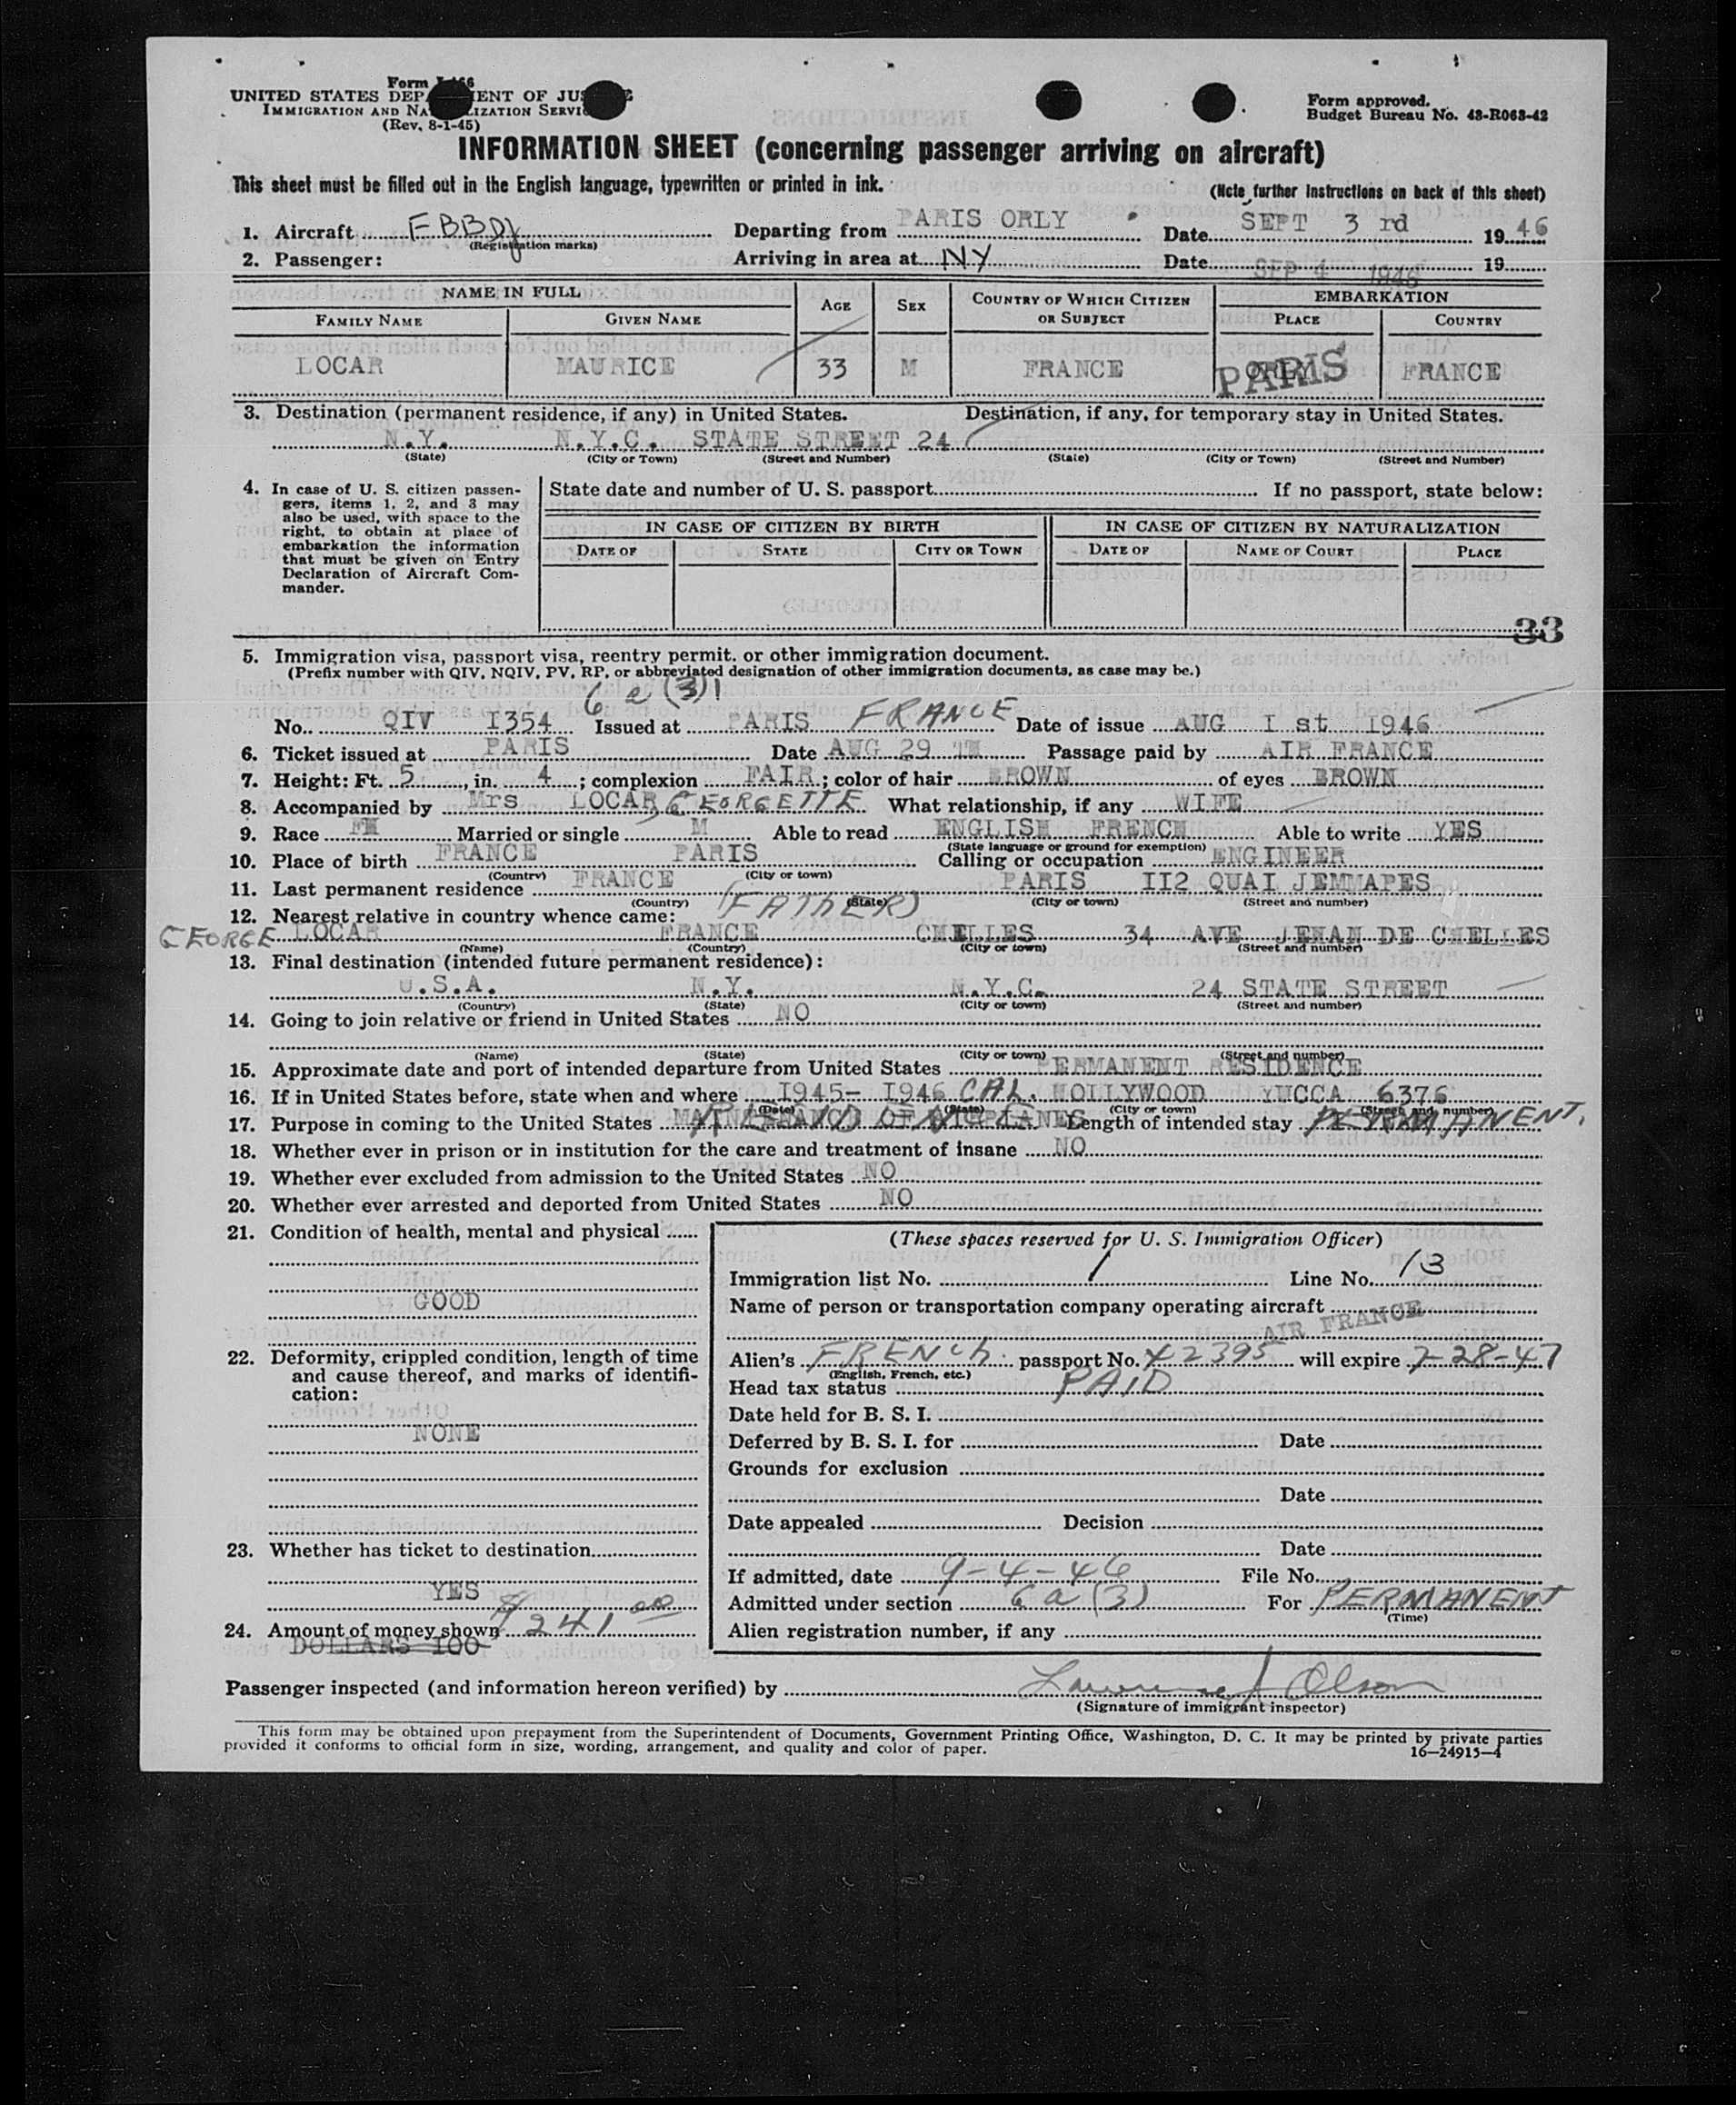 Form I-466
UNITED STATES DEPARTMENT OF JUSTICE
IMMIGRATION AND NATURALIZATION SERVICE
(Rev. 8-1-45)
Form approved.
Budget Bureau No. 43-R063-42
INFORMATION SHEET (concerning passenger arriving on aircraft)
This sheet must be filled out in the English language, typewritten or printed in ink.
(Note further instructions on back of this sheet)
1. Aircraft FBBDJ Departing from PARIS ORLY Date SEPT 3 rd 1946
(Registration marks)
2. Passenger: Arriving in area at NY Date SEP 4 1946 19
NAME IN FULL AGE SEX COUNTRY OF WHICH CITIZEN OR SUBJECT EMBARKATION
FAMILY NAME GIVEN NAME PLACE COUNTRY
LOCAR MAURICE 33 M FRANCE ORLY PARIS FRANCE
3. Destination (permanent residence, if any) in United States. Destination, if any, for temporary stay in United States.
N.Y. N.Y.C. STATE STREET 24
(State) (City or Town) (Street and Number) (State) (City or Town) (Street and Number)
4. In case of U. S. citizen passen-
gers, items 1, 2, and 3 may
also be used, with space to the
right, to obtain at place of
embarkation the information
that must be given on Entry
Declaration of Aircraft Com-
mander.
State date and number of U. S. passport If no passport, state below:
IN CASE OF CITIZEN BY BIRTH IN CASE OF CITIZEN BY NATURALIZATION
DATE OF STATE CITY OR TOWN DATE OF NAME OF COURT PLACE
33
5. Immigration visa, passport visa, reentry permit, or other immigration document.
(Prefix number with QIV, NQIV, PV, RP, or abbreviated designation of other immigration documents, as case may be.)
6 a (3)
No. QIV I354 Issued at PARIS FRANCE Date of issue AUG I st I946
6. Ticket issued at PARIS Date AUG 29 TH Passage paid by AIR FRANCE
7. Height: Ft. 5, in. 4; complexion FAIR; color of hair BROWN of eyes BROWN
8. Accompanied by Mrs LOCAR GEORGETTE What relationship, if any WIFE
9. Race FH Married or single M Able to read ENGLISH FRENCH Able to write YES
(State language or ground for exemption)
10. Place of birth FRANCE PARIS Calling or occupation ENGINEER
(Country) (City or town)
11. Last permanent residence FRANCE PARIS II2 QUAI JEMMAPES
(Country) (State) (City or town) (Street and number)
12. Nearest relative in country whence came: (FATHER)
GEORGE LOCAR FRANCE CHELLES 34 AVE JEHAN DE CHELLES
(Name) (Country) (City or town) (Street and number)
13. Final destination (intended future permanent residence):
U.S.A. N.Y. N.Y.C. 24 STATE STREET
(Country) (State) (City or town) (Street and number)
14. Going to join relative or friend in United States NO
(Name) (State) (City or town) (Street and number)
15. Approximate date and port of intended departure from United States PERMANENT RESIDENCE
16. If in United States before, state when and where I945- I946 CAL. HOLLYWOOD YUCCA 6376
(Date) (State) (City or town) (Street and number)
17. Purpose in coming to the United States MAINTENANCE OF AIRPLANES Length of intended stay PERMANENT.
18. Whether ever in prison or in institution for the care and treatment of insane NO
19. Whether ever excluded from admission to the United States NO
20. Whether ever arrested and deported from United States NO
21. Condition of health, mental and physical
GOOD
22. Deformity, crippled condition, length of time
and cause thereof, and marks of identifi-
cation:
NONE
23. Whether has ticket to destination
YES
24. Amount of money shown $241 00
DOLLARS I00
(These spaces reserved for U. S. Immigration Officer)
Immigration list No. 1 Line No. 13
Name of person or transportation company operating aircraft
AIR FRANCE
Alien's FRENCH passport No. 42395 will expire 7-28-47
(English, French, etc.)
Head tax status PAID
Date held for B. S. I.
Deferred by B. S. I. for Date
Grounds for exclusion
Date
Date appealed Decision
Date
If admitted, date 9-4-46 File No.
Admitted under section 6a(3) For PERMANENT
(Time)
Alien registration number, if any
Passenger inspected (and information hereon verified) by Lawrence J Olson
(Signature of immigrant inspector)
This form may be obtained upon prepayment from the Superintendent of Documents, Government Printing Office, Washington, D. C. It may be printed by private parties
provided it conforms to official form in size, wording, arrangement, and quality and color of paper.
16—24915-4